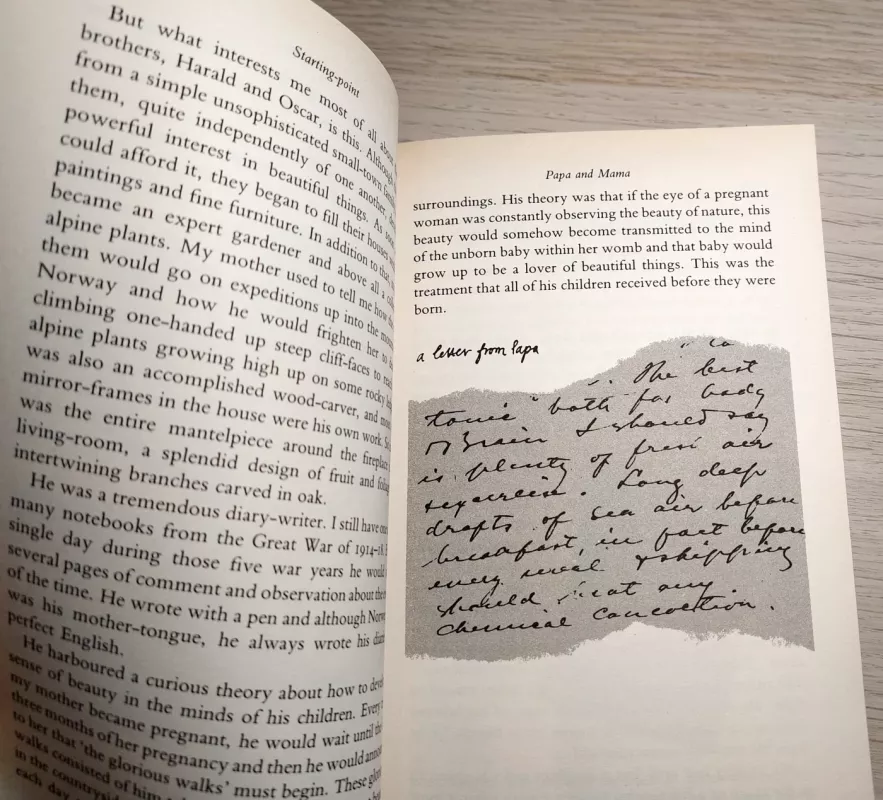 Starting-point
But what interests me most of all about
brothers, Harald and Oscar, is this. Although
from a simple unsophisticated small-town
them, quite independently of one another,
powerful interest in beautiful things. As soon
could afford it, they began to fill their houses
paintings and fine furniture. In addition to that
became an expert gardener and above all a
alpine plants. My mother used to tell me how
them would go on expeditions up into the
Norway and how he would frighten her to
climbing one-handed up steep cliff-faces to
alpine plants growing high up on some rocky
was also an accomplished wood-carver, and
mirror-frames in the house were his own work.
was the entire mantelpiece around the fireplace
living-room, a splendid design of fruit and
intertwining branches carved in oak.
He was a tremendous diary-writer. I still have
many notebooks from the Great War of 1914-18.
single day during those five war years he would
several pages of comment and observation about the
of the time. He wrote with a pen and although
was his mother-tongue, he always wrote his
perfect English.
He harboured a curious theory about how to
sense of beauty in the minds of his children. Every
my mother became pregnant, he would wait until
three months of her pregnancy and then he would
to her that 'the glorious walks' must begin. These
walks consisted of him
in the
each day
Papa and Mama
surroundings. His theory was that if the eye of a pregnant
woman was constantly observing the beauty of nature, this
beauty would somehow become transmitted to the mind
of the unborn baby within her womb and that baby would
grow up to be a lover of beautiful things. This was the
treatment that all of his children received before they were
born.
a letter from Papa
The best
tonic both for body
Brain I should say
is plenty of fresh air
exercise. Long deep
drafts of sea air before
breakfast, in fact before
every meal & skipping
should beat any
chemical concoction.